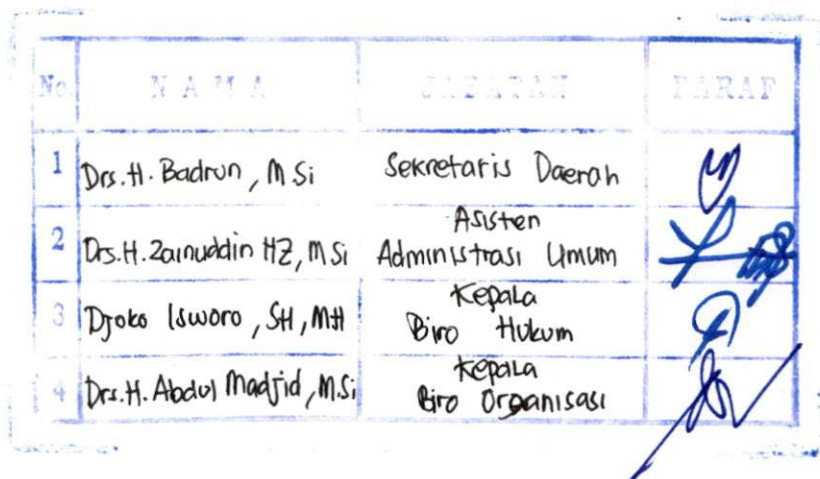 No N A M A JABATAN PARAF
1 Drs. H. Badrun, M Si Sekretaris Daerah
2 Drs. H. Zainuddin HZ, M Si Asisten
Administrasi Umum
3 Djoko Isworo, SH, MH Kepala
Biro Hukum
4 Drs. H. Abdul Madjid, M.Si Kepala
Biro Organisasi